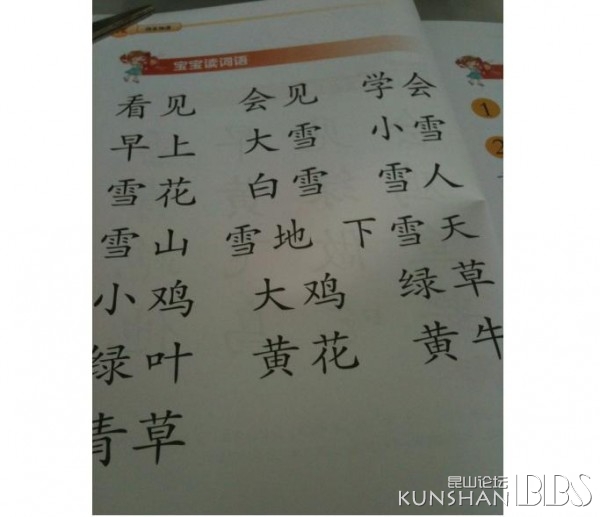 宝宝读词语
看见 会见 学会
早上 大雪 小雪
雪花 白雪 雪人
雪山 雪地 下雪天
小鸡 大鸡 绿草
绿叶 黄花 黄牛
青草
1
2
昆山论坛
KUNSHAN BBS